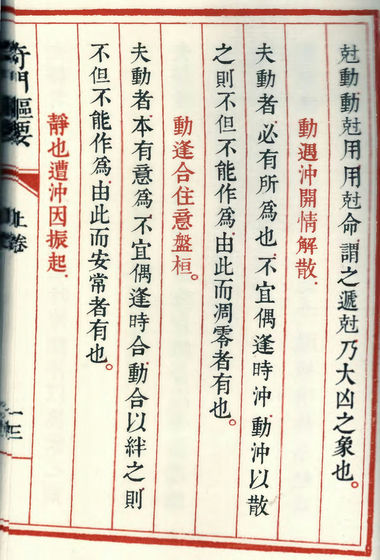 尅動動尅用用尅命謂之遞尅乃大凶之象也。
動遇沖開情解散.
夫動者.必有所為也.不宜偶逢時沖.動沖以散
之則不但不能作為.由此而凋零者有也。
動逢合住意盤桓。
夫動者本有意為.不宜偶逢時合.動合以絆之則
不但不能作為.由此而安常者有也。
靜也遭沖因振起.
奇門樞要
上卷